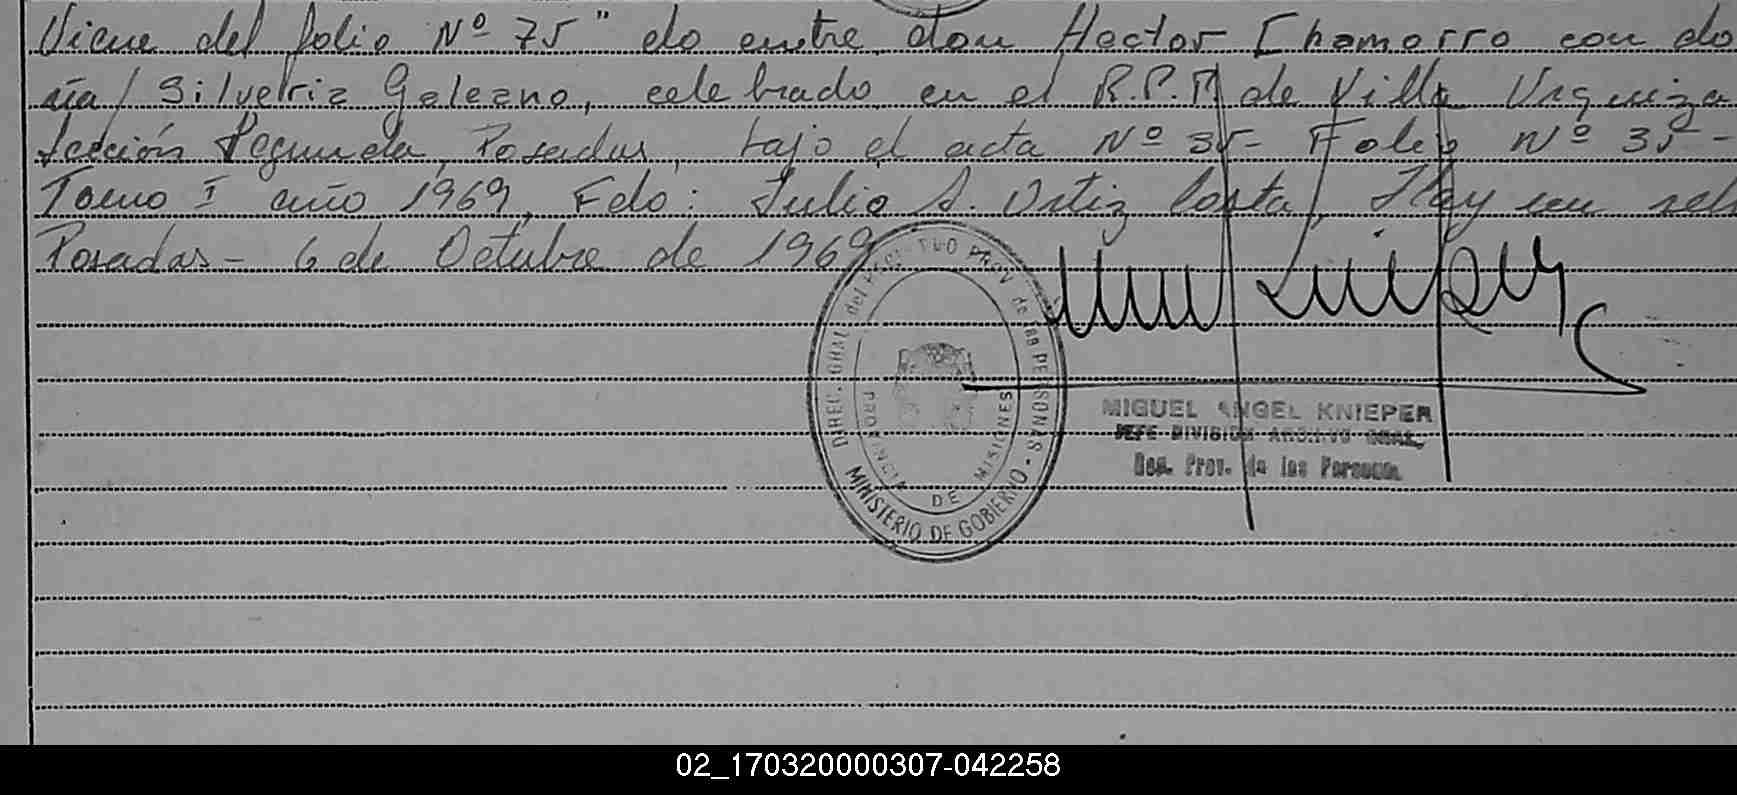 Viene del folio Nº 75" do entre don Hector Chamorro con do
ña/ Silveria Galeano, celebrado en el R.P.P. de Villa Urquiza
Sección Segunda, Posadas, bajo el acta Nº 35- Folio Nº 35-
Tomo I año 1969, Fdo: Julio A. Ortiz Costa, Hay un sell
Posadas- 6 de Octubre de 1969
DIREC. GRAL del PROV de las PERSONAS - MINISTERIO DE GOBIERNO -
PROVINCIA DE MISIONES
MIGUEL ANGEL KNIEPER
JEFE DIVISION ARCHIVO GRAL.
Reg. Prov. de las Personas
02_170320000307-042258